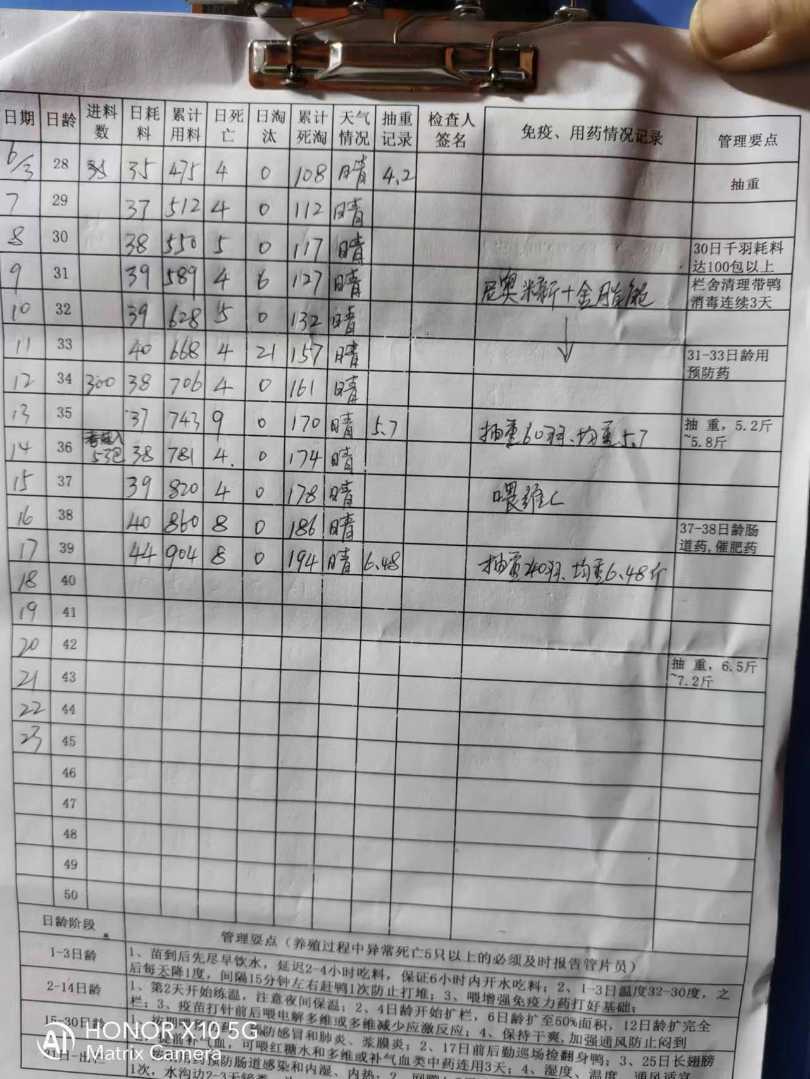 日期 日龄 进料数 日耗料 累计用料 日死亡 日淘汰 累计死淘 天气情况 抽重记录 检查人签名 免疫、用药情况记录 管理要点
6/3 28 35 35 475 4 0 108 晴 4.2 抽重
7 29 37 512 4 0 112 晴
8 30 38 550 5 0 117 晴 30日千羽耗料达100包以上
9 31 39 589 4 6 127 晴 栏舍清理带鸭消毒连续3天
10 32 39 628 5 0 132 晴
11 33 40 668 4 21 157 晴 31-33日龄用预防药
12 34 300 38 706 4 0 161 晴
13 35 37 743 9 0 170 晴 5.7 抽重60羽、均重5.7 抽 重，5.2斤~5.8斤
14 36 53包 38 781 4 0 174 晴
15 37 39 820 4 0 178 晴 喂维C
16 38 40 860 8 0 186 晴 37-38日龄肠道药,催肥药
17 39 44 904 8 0 194 晴 6.48 抽重240羽、均重6.48斤
18 40
19 41
20 42
21 43 抽 重，6.5斤~7.2斤
22 44
23 45
46
47
48
49
50
日龄阶段 管理要点（养殖过程中异常死亡5只以上的必须及时报告管片员）
1-3日龄 1、苗到后先尽早饮水，延迟2-4小时吃料，保证6小时内开水吃料；2、1-3日温度32-30度，之后每天降1度，间隔15分钟左右赶鸭1次防止打堆；3、喂增强免疫力药打好基础；
2-14日龄 1、第2天开始炼温，注意夜间保温；2、4日龄开始扩栏，6日龄扩至60%面积，12日龄扩完全栏；3、疫苗打针前后喂电解多维或多维减少应激反应；4、保持干爽,加强通风防止闷到
15-30日龄 防感冒和肺炎、浆膜炎；2、17日前后勤巡场检翻身鸭；3、25日长翅膀
补气血，可喂红糖水和多维或补气血类中药连用3天；4、湿度、温度、通风适宜
预防肠道感染和内湿、内热；2
1次，水沟边2-3天
HONOR X10 5G
AI Matrix Camera